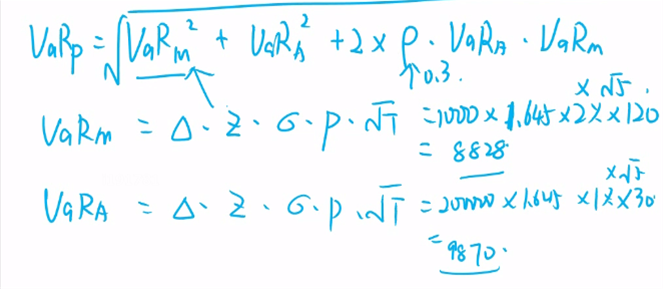 VaRp = √VaRm² + VaRA² + 2 × ρ · VaRA · VaRm
↑0.3.
× √5.
VaRm = Δ · Z · σ · p · √T = 1000 × 1.645 × 2% × 120
= 8828
× √5
VaRA = Δ · Z · σ · p · √T = 20000 × 1.645 × 1% × 30
= 9870.